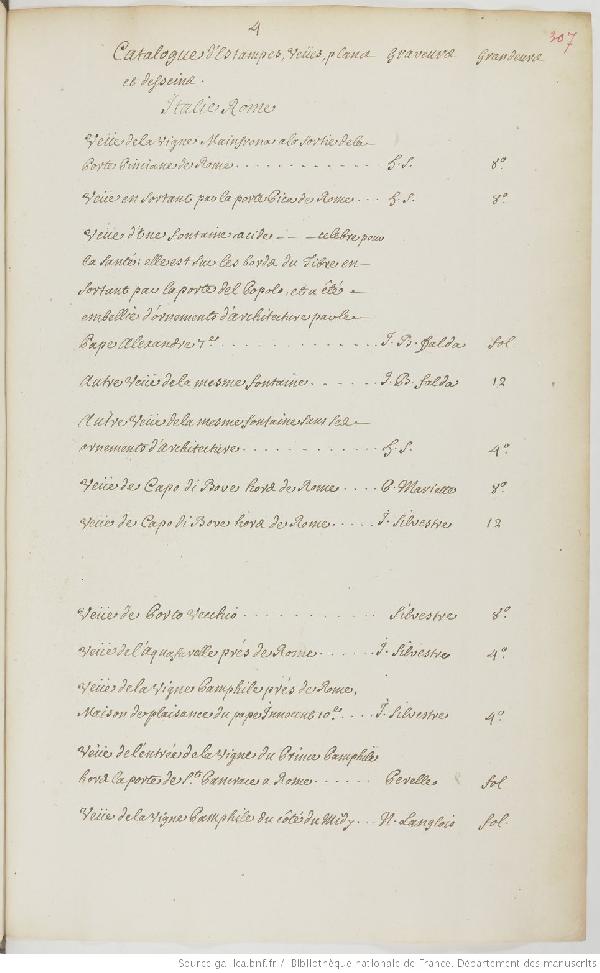 4
307
Catalogue d'Estampes, Veües, plans Graveurs Grandeurs
et desseins.
Italie Rome
Veüe de la Vigne a la sortie de la
Porte Pinciane de Rome . . . . . . . . . . . G. S. 8º
Veüe en sortant par la porte Pica de Rome . . . G. S. 8º
Veüe d'Une fontaine acide – – – celebre pour
la santé; elle est sur les bords du Tibre en
sortant par la porte del Popolo, et a été
embellie d'ornements d'architecture par le
Pape Alexandre 7.e . . . . . . . . . . . . J. B. falda fol
Autre Veüe de la mesme fontaine . . . . . . J. B. falda 12
Autre Veüe de la mesme fontaine sans les
ornements d'architecture . . . . . . . . . . . G. S. 4º
Veüe de Capo di Bove hors de Rome . . . . P. Mariette 8º
Veüe de Capo di Bove hors de Rome . . . . . J. Silvestre 12
Veüe de Porto Vecchio . . . . . . . . . . . . Silvestre 8º
Veüe de l'Aqua prés de Rome . . . . . J. Silvestre 4º
Veüe de la Vigne Pamphile prés de Rome,
Maison de plaisance du pape Innocent 10.e . . . . J. Silvestre 4º
Veüe de l'entrée de la Vigne du Prince Pamphile
hors la porte de St. Pancrace a Rome . . . . . . Perelle fol
Veüe de la Vigne Pamphile du côté du Midy . . . N. Langlois fol.
Source gallica.bnf.fr / Bibliothèque nationale de France. Département des manuscrits